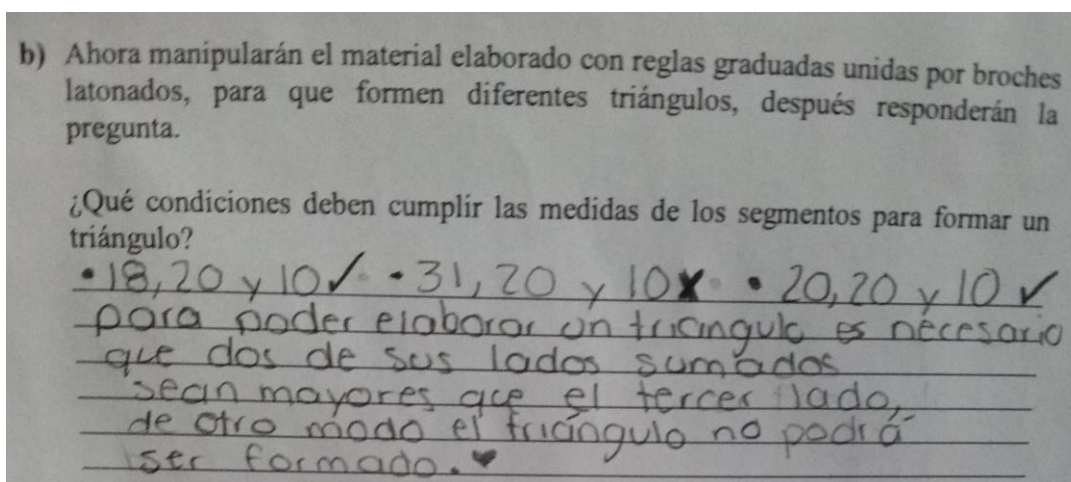 b) Ahora manipularán el material elaborado con reglas graduadas unidas por broches
latonados, para que formen diferentes triángulos, después responderán la
pregunta.
¿Qué condiciones deben cumplir las medidas de los segmentos para formar un
triángulo?
•18, 20 y 10 ✓ •31, 20 y 10 x • 20, 20 y 10 ✓
para poder elaborar un triangulo es necesario
que dos de sus lados sumados
sean mayores que el tercer lado,
de otro modo el triángulo no podrá
ser formado. ♥